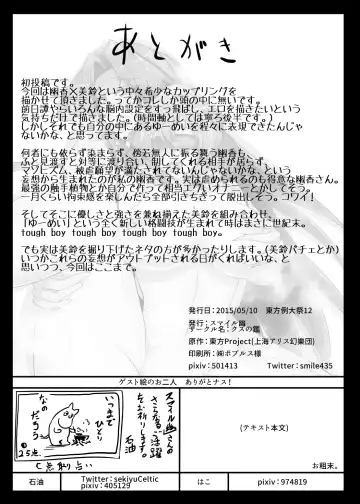 あとがき
初投稿です。
今回は幽香×美鈴という中々希少なカップリングを
描かせて頂きました。ってかコレしか頭の中に無いです。
前日譚やらいろんな脳内設定をすっ飛ばし、エロを描きたいという
気持ちだけで描きました。(時間軸としては寧ろ後半です。)
しかしそれでも自分の中にあるゆーめいを程々に表現できたんじゃ
ないかな、と思ってます。
何者にも依らず染まらず、傍若無人に振る舞う幽香も、
ふと見渡すと対等に渡り合い、制してくれる相手が居らず、
マゾヒズム、被虐願望が満たされてないんじゃないかな、という
妄想から生まれたのが私の幽香です。実は虐められるのも得意な幽香さん。
最強の触手植物とか自分で作って相当エグいオナニーとかしてそう。
一月くらい拘束感を楽しんだら全部引きちぎって脱出しそう。コワイ!
そしてそこに優しさと強さを兼ね揃えた美鈴を組み合わせ、
「ゆーめい」という全く新しい格闘技が生まれて時はまさに世紀末。
tough boy tough boy tough boy tough boy.
でも実は美鈴を掘り下げたネタの方が多かったりします。(美鈴パチェとか)
いつかこれらの妄想がアウトプットされる日がくればいいな、と
思いつつ、今回はここまで。
発行日:2015/05/10 東方例大祭12
発行:スマイル
サークル名:クスの鑑
原作:東方Project(上海アリス幻樂団)
印刷所:㈱ポプルス様
pixiv:501413 Twitter:smile435
ゲスト絵のお二人 ありがとナス!
いつまで
なの
だろう
25点
C点取り占い
スマイルさんの
さらなるご活躍
をお祈りします。
石油
(テキスト本文)
お粗末。
石油
Twitter:sekiyuCeltic
pixiv:405129
はこ
pixiv:974819